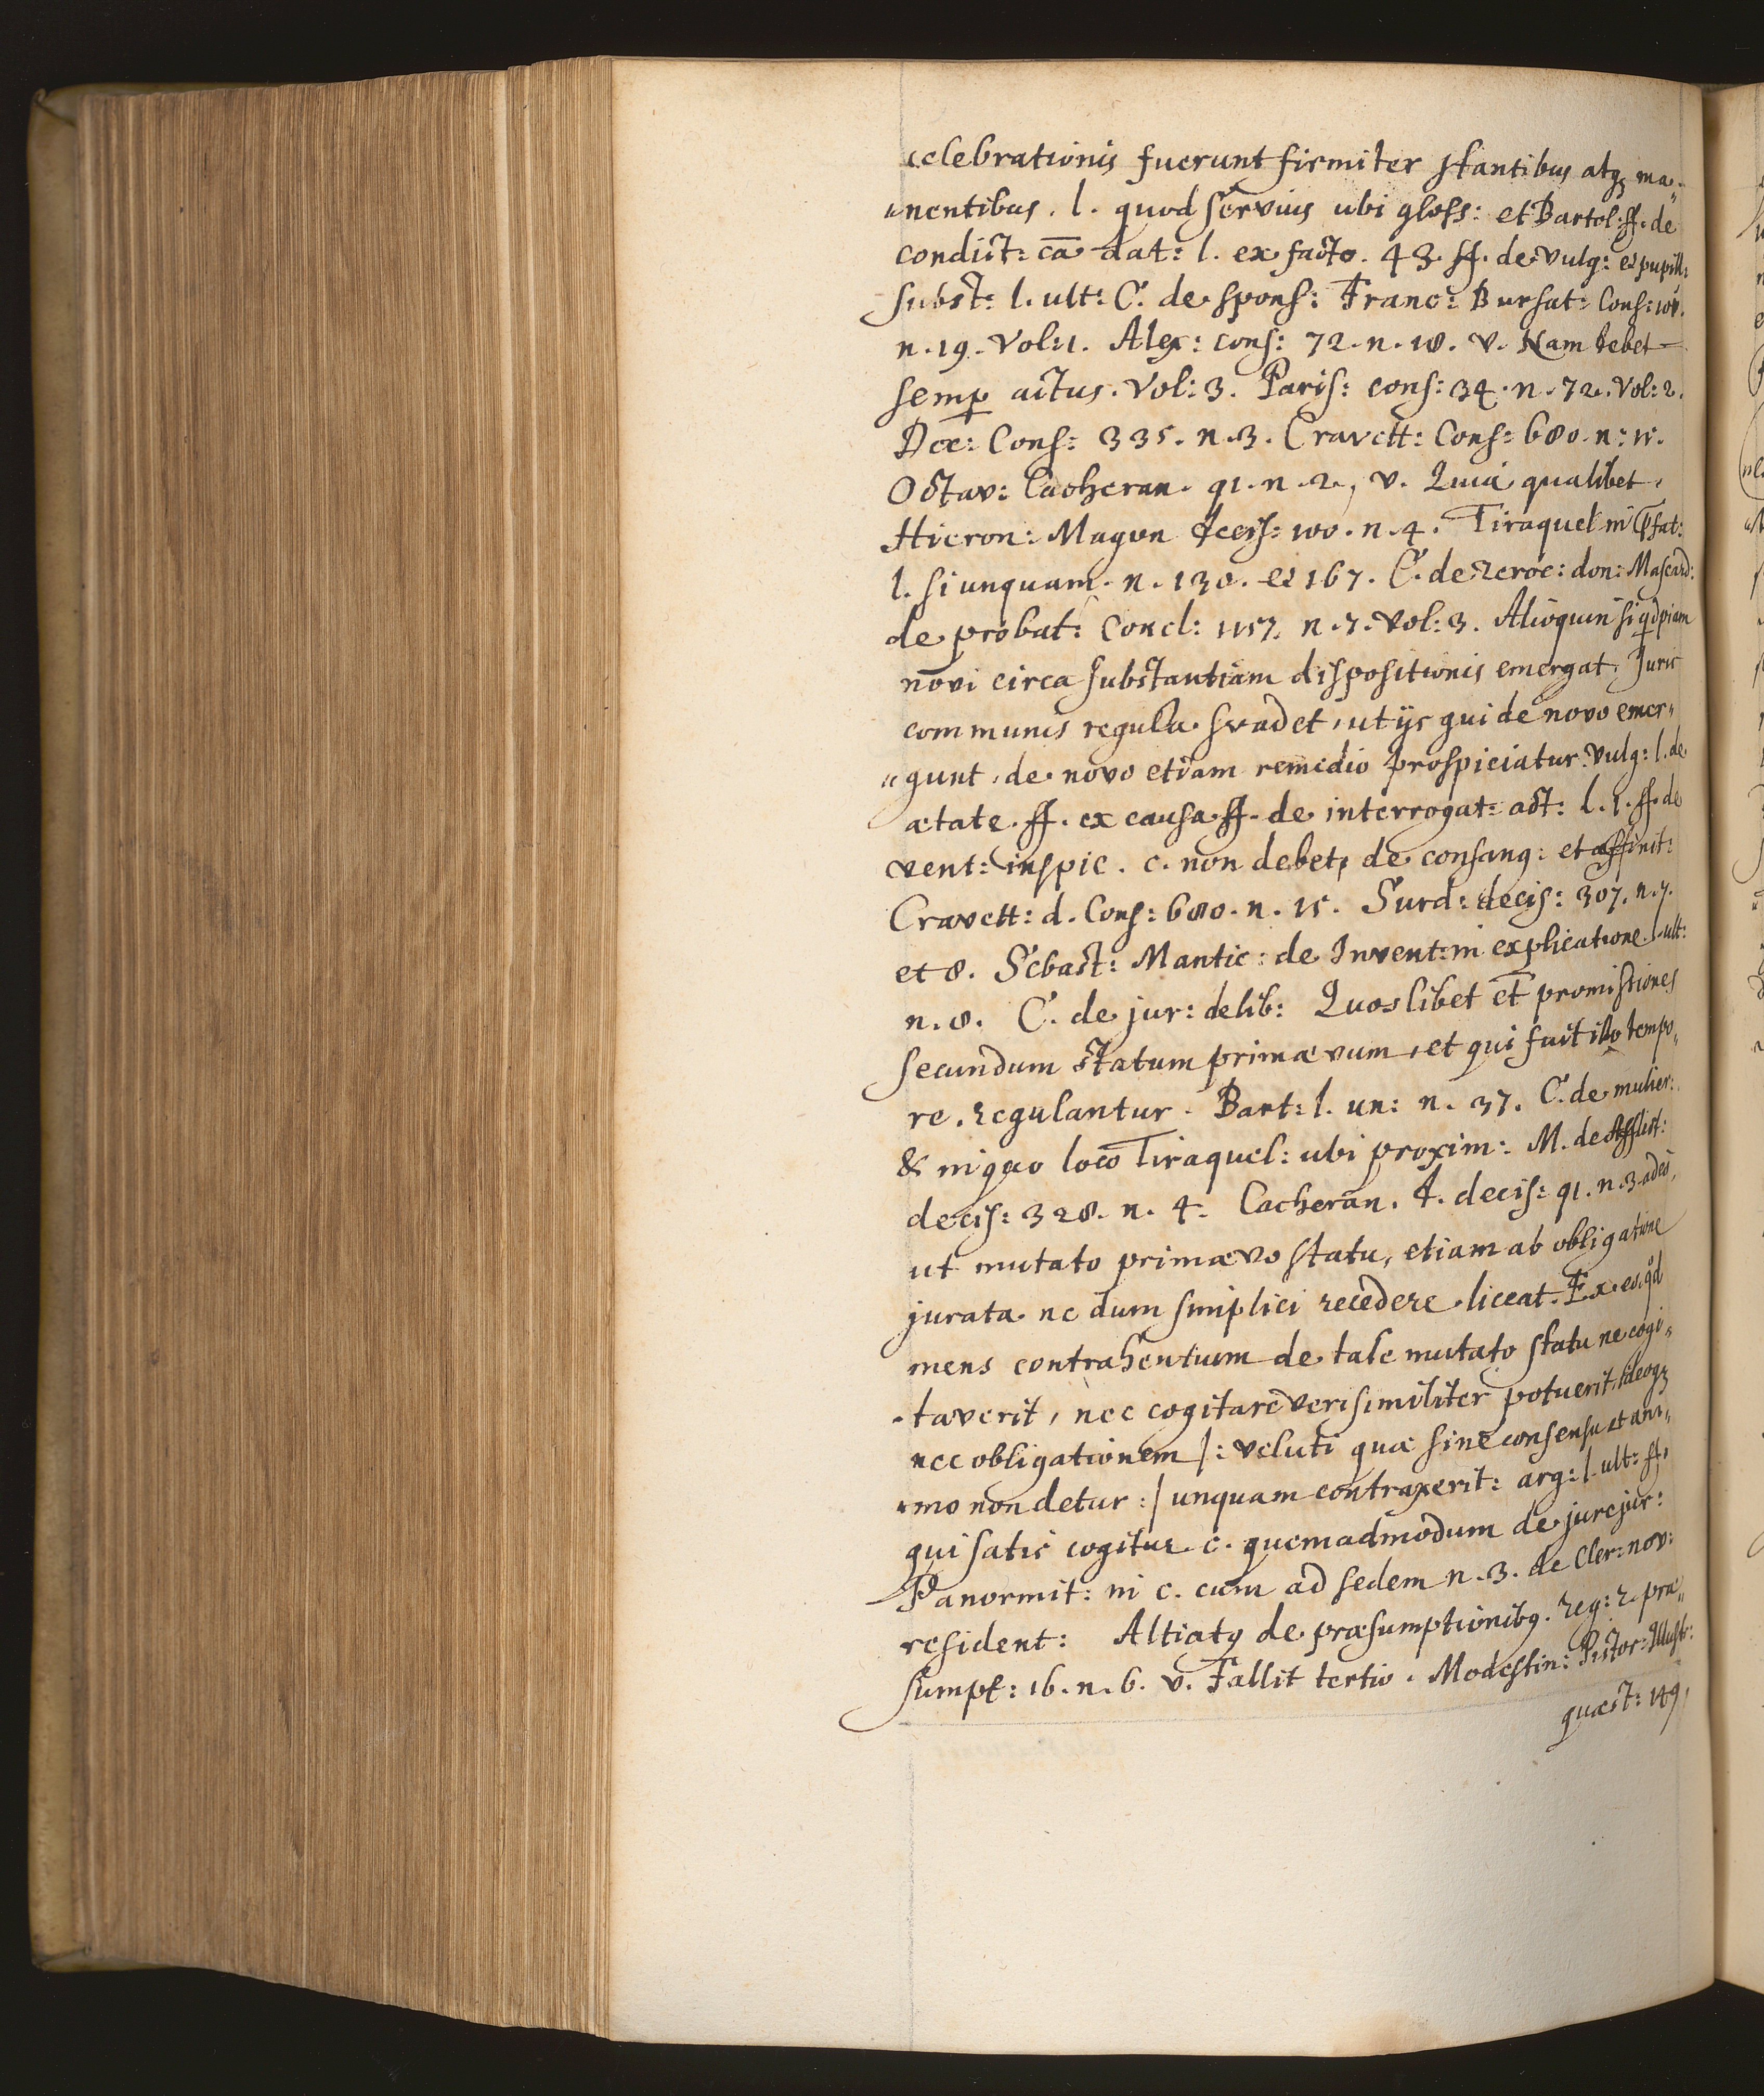 celebrationis fuerunt firmiter stantibus atq; ma„
„nentibus. l. quod servius ubi gloss: et Bartol. ff. de
condict: cā dat: l. ex facto. 43. ff. de vulg: et pupill:
subst: l. ult: C. de spons: Franc: Bursat: Cons:
n. 19. Vol: 1. Alex: cons: 72. n. 18. v. Nam debet
semp actus. Vol: 3. Paris: cons: 34. n. 72. Vol: 2.
Dec: Cons: 335. n. 3. Cravett: Cons: 680. n: 15.
Octav: Cacheran. 91. n. 2, v. Quia qualibet.
Hieron: Magon decis: 100. n. 4. Tiraquel in pfat:
l. si unquam. n. 130. et 167. C. de revoc: don: Mascard:
de probat: Concl: 1157. n. 7. Vol: 3. Alioquin si qdpiam
novi circa substantiam dispositionis emergat, Juris
communis regula svadet, ut ijs qui de novo emer„
„gunt, de novo etiam remedio prospiciatur. Vulg: l. de
ætate. ff. ex causa ff. de interrogat: act: l. 1. ff. de
vent: inspic. c. non debet, de consang: et affinit:
Cravett: d. Cons: 680. n. 15. Surd: decis: 307. n. 7.
et 8. Sebast: Mantic: de Invent: in explicatione l. ult:
n. 8. C. de jur: delib: Quoslibet et promissiones
secundum statum primævum, et qui fuit illo tempo„
re, regulantur. Bart: l. un: n. 37. C. de mulier:
& in quo loco Tiraquel: ubi proxim: M. de Afflict:
decis: 328. n. 4. Cacheran. d. decis: 91. n. 3. adeo,
ut mutato primævo statu, etiam ab obligatione
jurata ne dum simplici recedere liceat. Ex eo, qd
mens contrahentium de tale mutato statu ne cogi„
„taverit, nec cogitare verisimiliter potuerit, ideoq;
nec obligationem /: veluti quæ sine consensu et ani„
„mo non detur :/ unquam contraxerit: arg: l. ult: ff.
qui satis cogitur c. quemadmodum de jurejur:
Panormit: in c. cum ad sedem n. 3. de Cler: nov:
resident: Altiatq de præsumptionibq. reg: 2. præ„
sumpt: 16. n. 6. v. Fallit tertio. Modestin: Pistor: Illust:
quæst: 149,